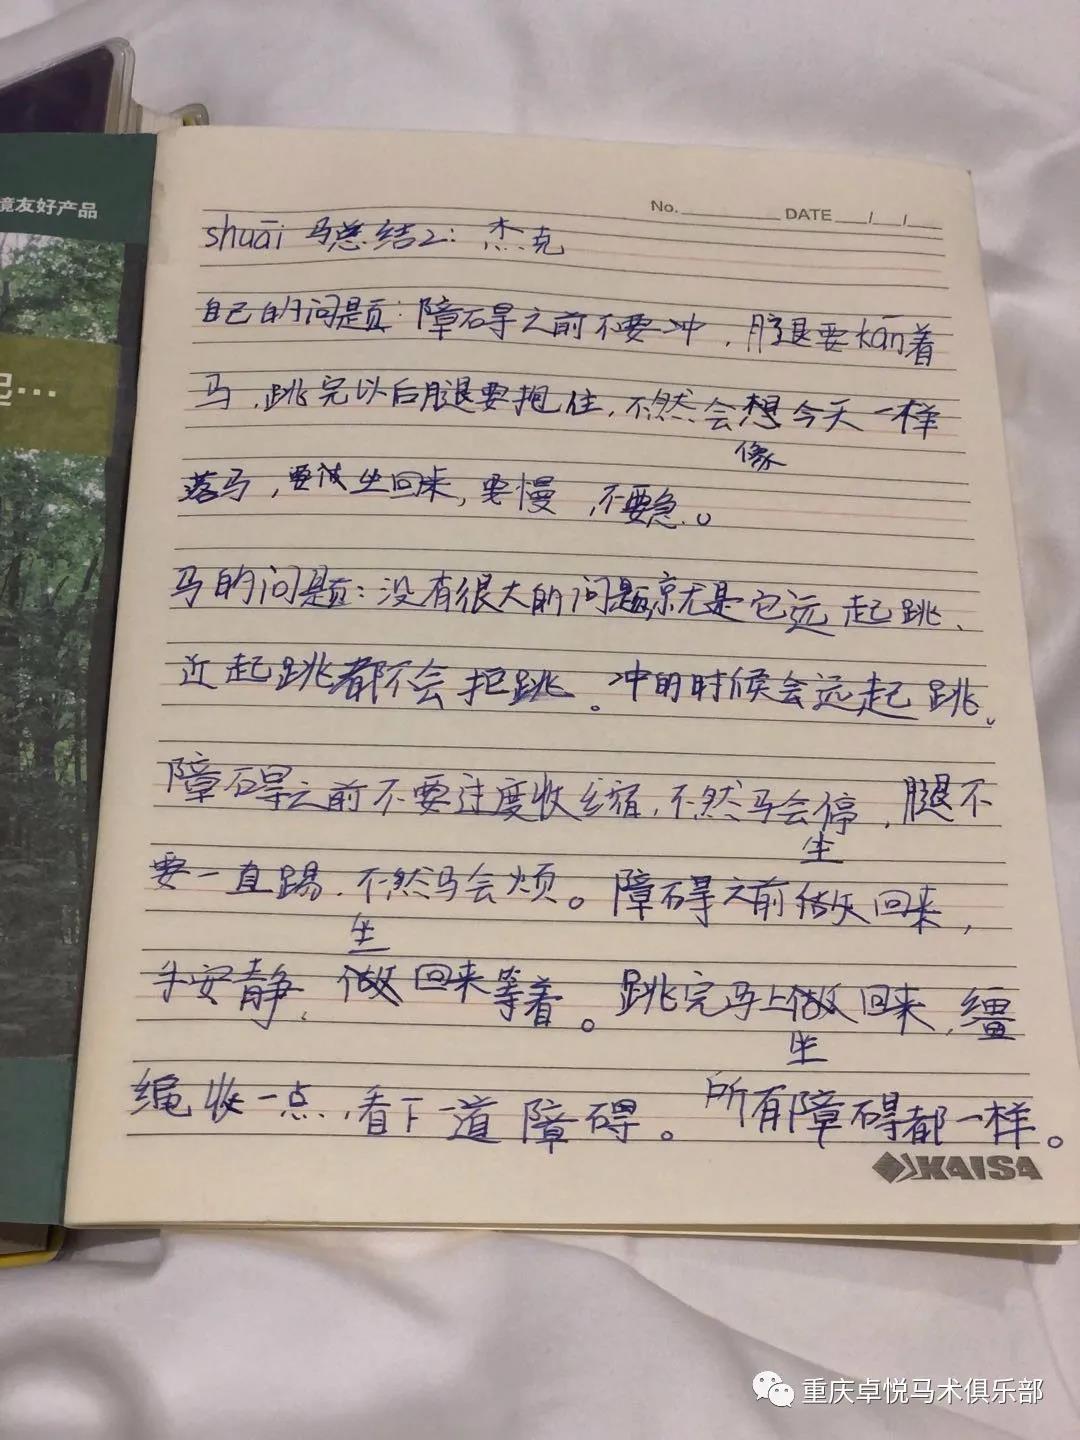 境友好产品
起…
No. DATE / /
shuāi 马总结2：杰克
自己的问题：障碍之前不要冲，腿要kān着
马，跳完以后腿要抱住，不然会想今天一样
像
落马，要坐回来，要慢，不要急。
马的问题：没有很大的问题就是它远起跳、
近起跳都不会拒跳。冲的时候会远起跳。
障碍之前不要过度收缩，不然马会停，腿不
坐
要一直踢，不然马会烦。障碍之前做回来，
坐
手安静，做回来等着。跳完马上做回来，缰
坐
绳收一点，看下一道障碍。所有障碍都一样。
KAISA
重庆卓悦马术俱乐部